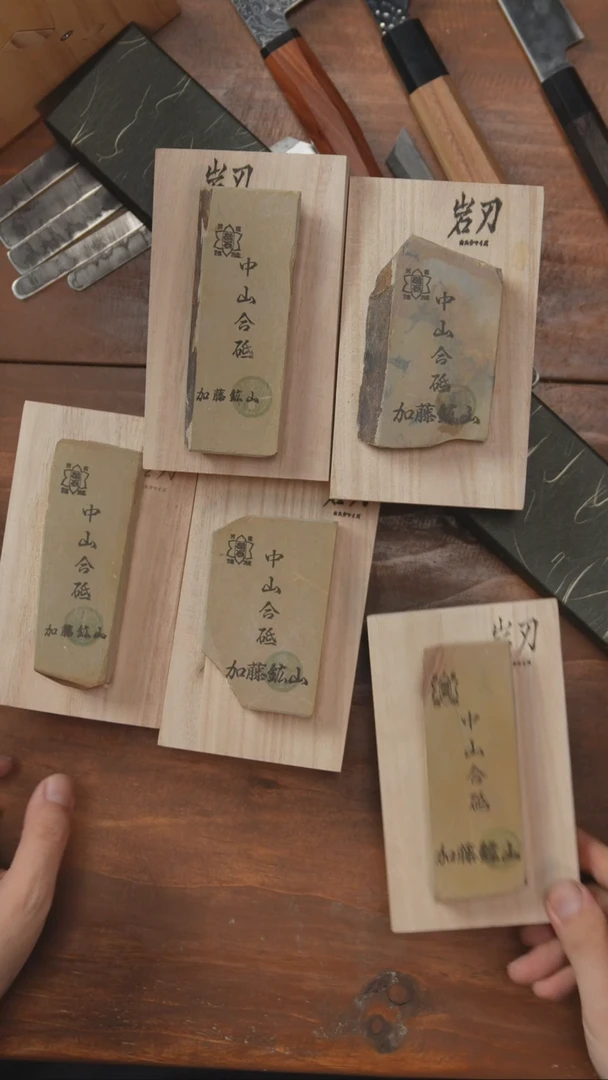 岩刃
中山合砥
加藤鉱山
岩刃
中山合砥
加藤鉱山
中山合砥
加藤鉱山
岩刃
中山合砥
加藤鉱山
岩刃
中山合砥
加藤鉱山